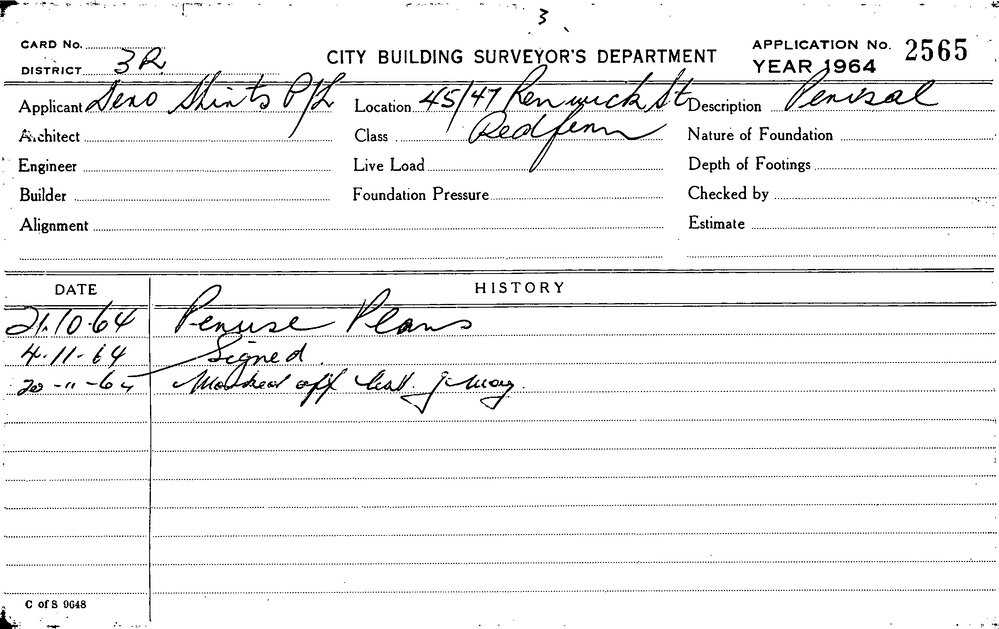 3
CARD No.
DISTRICT 3R
CITY BUILDING SURVEYOR'S DEPARTMENT
APPLICATION No. 2565
YEAR 1964
Applicant Deno Shirts P/L
Location 45/47 Renwick St Redfern
Description Perusal
Architect
Class
Nature of Foundation
Engineer
Live Load
Depth of Footings
Builder
Foundation Pressure
Checked by
Alignment
Estimate
DATE HISTORY
21.10.64 Peruse Plans
4.11.64 Signed.
20-11-65 Marked off
C of S 9648